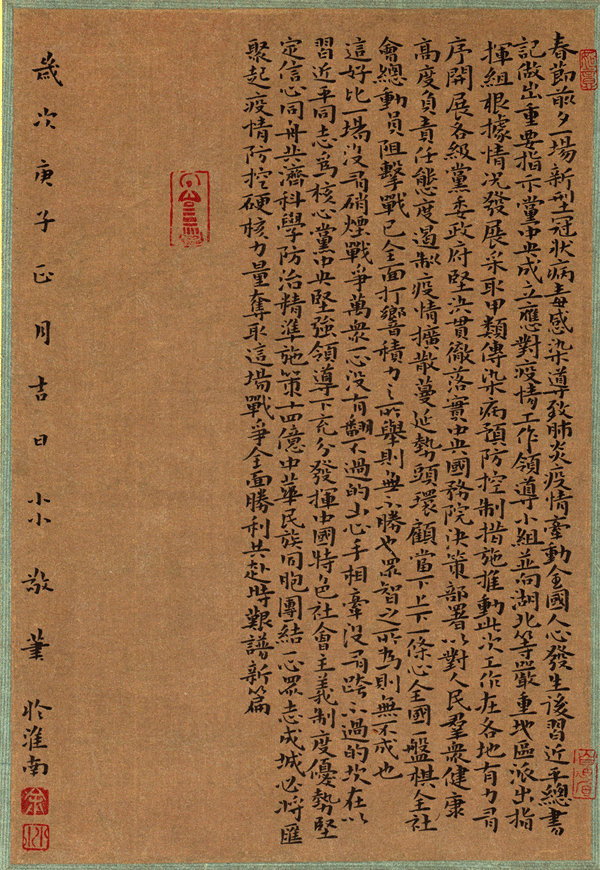 春節前夕一場新型冠狀病毒感染導致肺炎疫情牽動全國人心發生後習近平總書
記做出重要指示黨中央成立應對疫情工作領導小組並向湖北等嚴重地區派出指
揮組根據情况發展采取甲類傳染病預防控制措施推動此次工作在各地有力有
序開展各級黨委政府堅决貫徹落實中央國務院决策部署以對人民群衆健康
高度負責任態度遏制疫情擴散蔓延勢頭環顧當下上下一條心全國一盤棋全社
會總動員阻擊戰已全面打響積力之所舉則無不勝也眾智之所為則無不成也
這好比一場没有硝煙戰爭萬衆一心没有翻不過的山心手相牽没有跨不過的坎在以
習近平同志爲核心黨中央堅強領導下充分發揮中國特色社會主義制度優勢堅
定信心同舟共濟科學防治精準施策十四億中華民族同胞團結一心眾志成城必將匯
聚起疫情防控硬核力量奪取這場戰爭全面勝利共赴時艱譜新篇
歲次庚子正月吉日小小敬筆於淮南